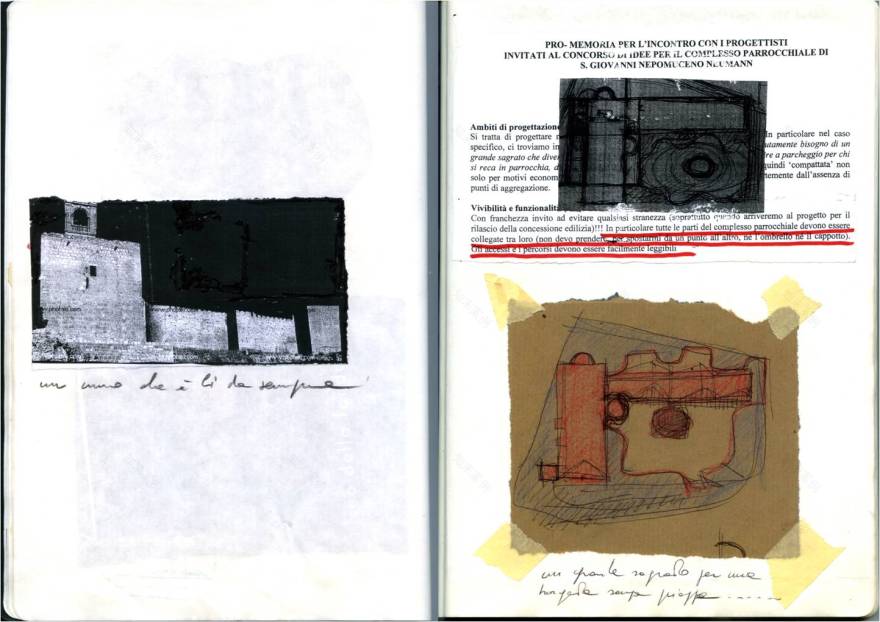 un muro che è lì da sempre
PRO- MEMORIA PER L'INCONTRO CON I PROGETTISTI
INVITATI AL CONCORSO DI IDEE PER IL COMPLESSO PARROCCHIALE DI
S. GIOVANNI NEPOMUCENO NEUMANN
Ambiti di progettazione
Si tratta di progettare In particolare nel caso
specifico, ci troviamo in utamente bisogno di un
grande sagrato che dive re a parcheggio per chi
si reca in parrocchia, d quindi 'compattata' non
solo per motivi econom temente dall'assenza di
punti di aggregazione.
Vivibilità e funzionalit
Con franchezza invito ad evitare qualsiasi stranezza (soprattutto quando arriveremo al progetto per il
rilascio della concessione edilizia)!!! In particolare tutte le parti del complesso parrocchiale devono essere
collegate tra loro (non devo prendere, per spostarmi da un punto all'altro, né l'ombrello né il cappotto).
Gli accessi e i percorsi devono essere facilmente leggibili
un grande sagrato per una
borgata senza piazza ........